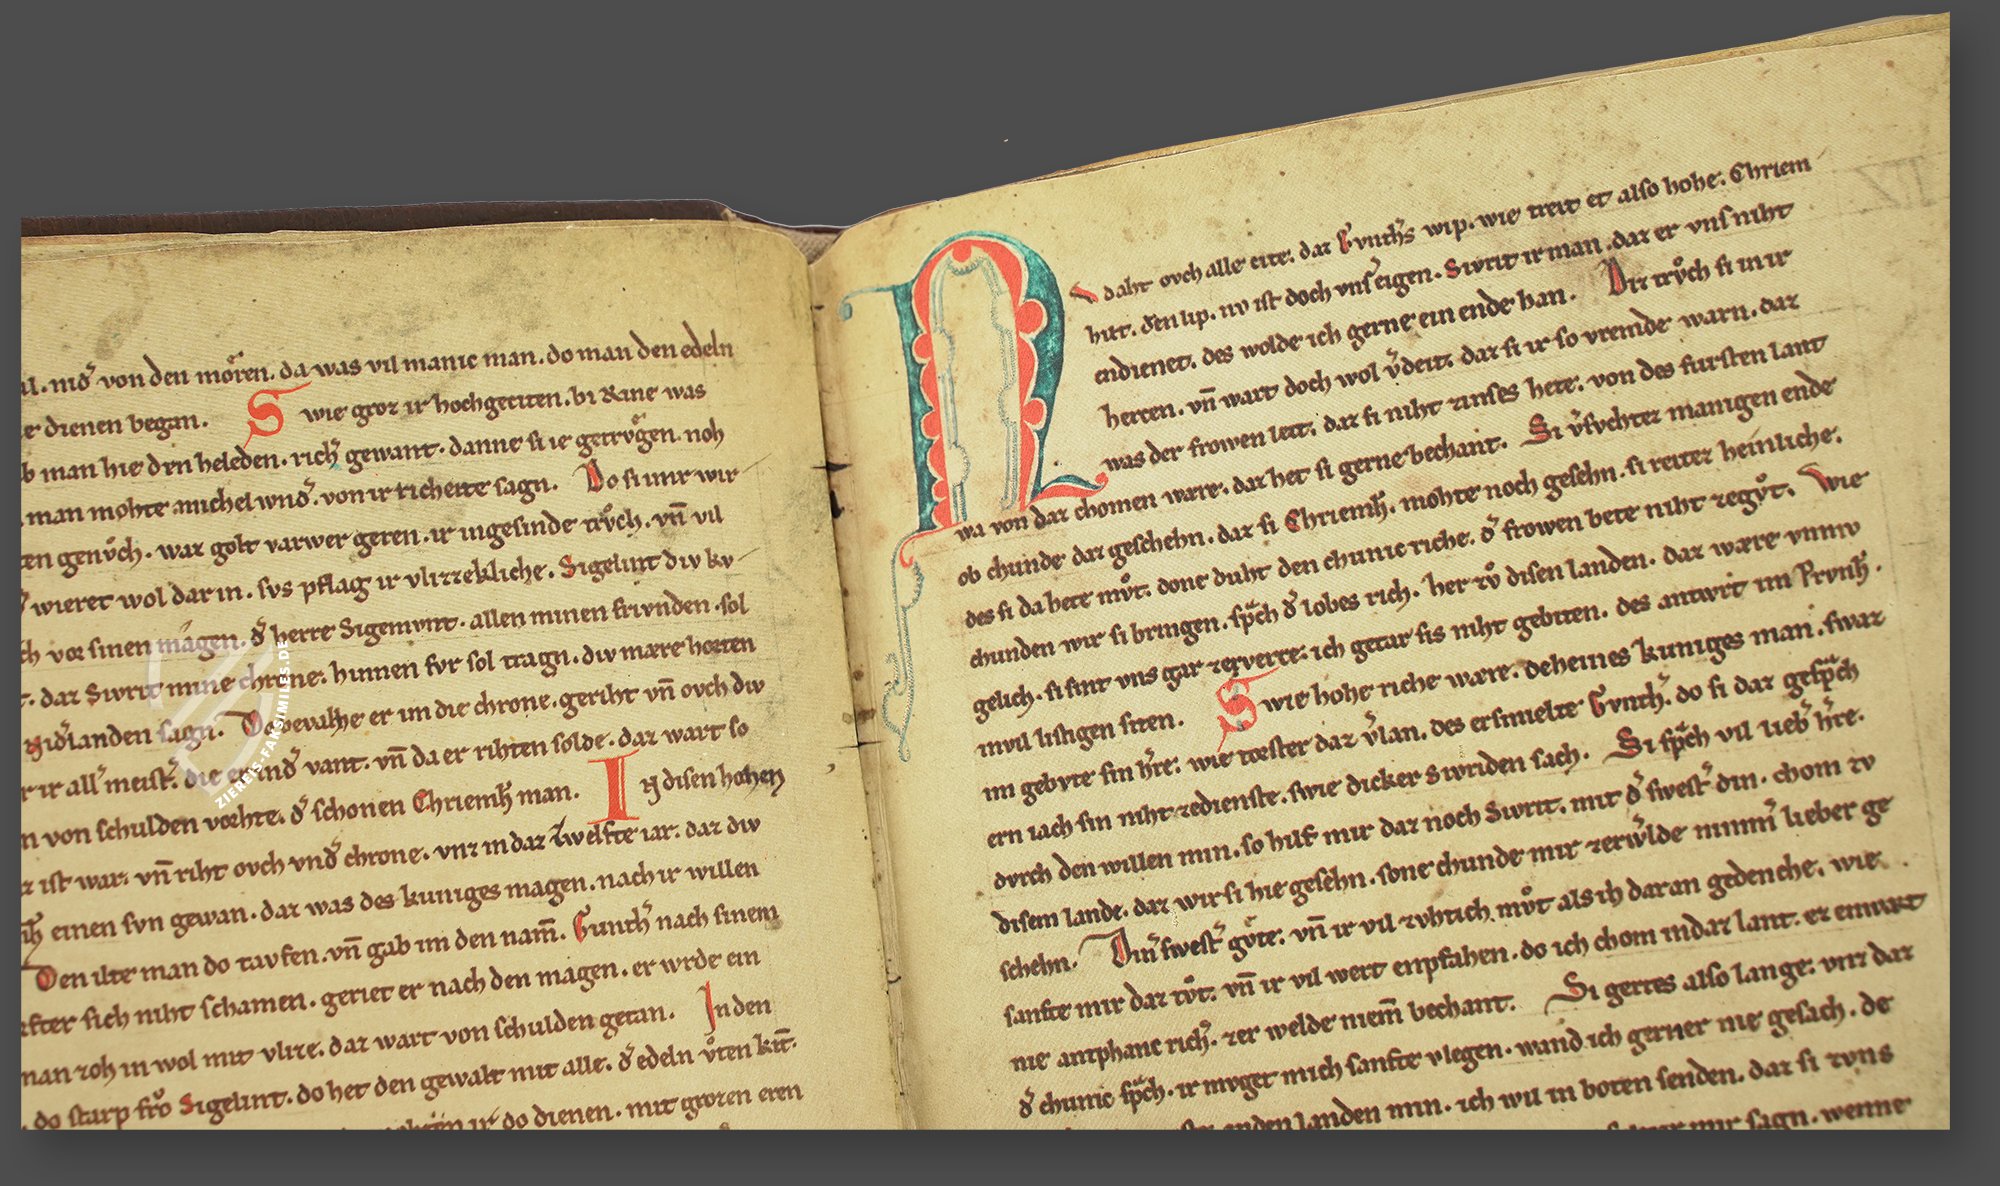 il. mđ von den moͤren. da was vil manic man. do man den edeln
e dienen began. Swie groz ir hochgeciten. bi Rine was
b man hie den heleden. rich gewant. danne si ie getrvͦgen. noh
man mohte michel wndͣ. von ir richeite sagn. Do si mir wir
en genvͦch. waz golt varwer geren. ir ingesinde trvͦch. vn̄ vil
wieret wol dar in. svs pflag ir vlizzekliche. Sigelint div kv
ch vor sinen magen. dͣ herre Sigemvnt. allen minen frivnden. sol
t. daz Sivrit mine chrone. hinnen fvr sol tragn. div mære horten
Nidͣlanden sagn. Do bevalhe er im die chrone. geriht vn̄ ovch div
r ir allͣ meistͣ. die er vindͣ vant. vn̄ da er rihten solde. daz wart so
n von schulden vorhte. dͣ schonen Chriemhͣ man. IN disen hohen
z ist war. vn̄ riht ovch vndͣ chrone. vnz in daz zwelfte iar. daz div
einen svn gewan. daz was des kuniges magen. nach ir willen
Den ilte man do tavfen. vn̄ gab im den nam̄. Gunthͣ nach sinem
sich niht schamen. geriet er nach den magen. er wrde ein
man zoh in wol mit vlize. daz wart von schulden getan. In den
do starp fro Sigelint. do het den gewalt mit alle. dͣ edeln vͦten kīt.
ir do dienen. mit grozen eren
NV daht ovch alle cite. daz Gvnthͣs wip. wie treit et also hohe. Chriem
hilt. den lip. nv ist doch vnsͣ eigen. Sivrit ir man. daz er vns niht
endienet. des wolde ich gerne ein ende han. Diz trvͦch si in ir
hercen. vn̄ wart doch wol vͣdeit. daz si ir so vremde warn. daz
was der frowen leit. daz si niht zinses hete. von des fursten lant
wa von daz chomen ware. daz het si gerne bechant. Si vͣsvchtez manigen ende
ob chunde daz geschehn. daz si Chriemhͣ. mohte noch gesehn. si reitez heinliche.
des si da hete mvͦt. done duht den chunic riche. dͣ frowen bete niht zegvͦt. Wie
chunden wir si bringen. sp͛ch dͣ lobes rich. her zvͦ disen landen. daz wære vnmv
gelich. si sint vns gar zeverre. ich getar sis niht gebiten. des antwrt im Prvnhͣ.
invil listigen siten. Swie hohe riche wære. deheines kuniges man. swaz
im gebvte sin hͣre. wie torster daz vͣlan. des ersmielte Gvnthͣ. do si daz gesp͛ch
ern iach sin niht zedienste. swie dicker Sivriden sach. Si sp͛ch vil liebͣ hͣre.
dvrch den willen min. so hilf mir daz noch Sivrit. mit dͣ swestͣ din. chom zv
disem lande. daz wir si hie gesehn. sone chunde mir zerwͣlde nimmͣ lieber ge
schehn. Dinͣ swestͣ gvͤte. vn̄ ir vil zvhtich mvͦt als ich daran gedenche. wie
sanfte mir daz tvͦt. vn̄ ir vil wert enpfahen. do ich chom indaz lant. ez enwart
nie antphanc richͣ. zer welde niem̄ bechant. Si gertes also lange. vnz daz
dͣ chunic sp͛ch. ir mvget mich sanfte vlegen. wand ich gerner nie gesach. de
landen min. ich wil in boten senden. daz si zvns
mir sagn. wenne
ZIEREIS-FAKSIMILES.DE